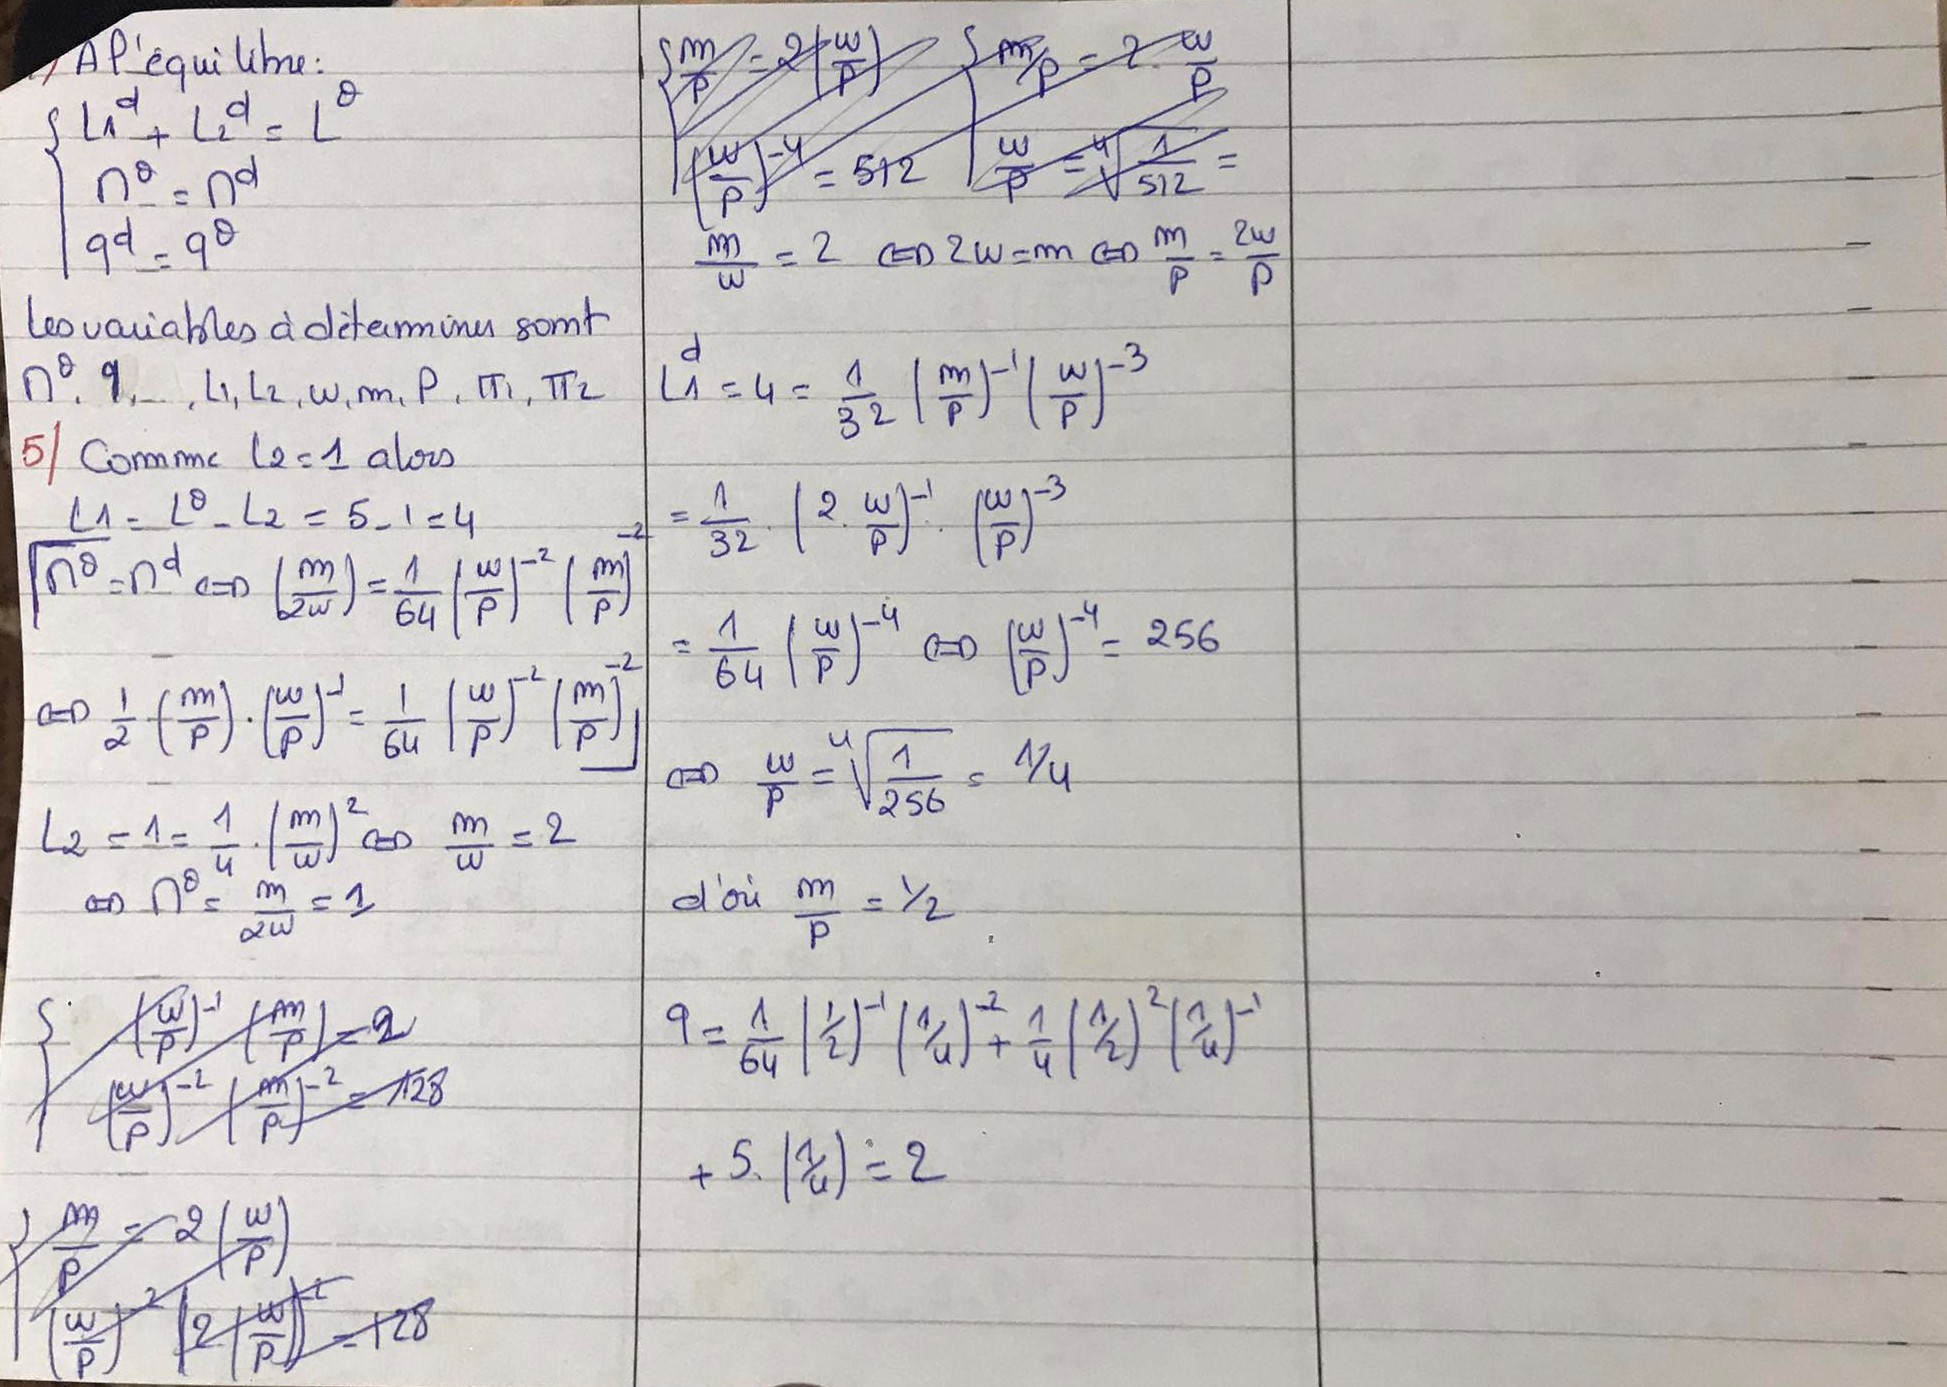 / A l'équilibre:
{ L1^d + L2^d = L^o
n^o = n^d
q^d = q^o
les variables à déterminer sont
n^o, q, ..., L1, L2, w, m, P, π1, π2
5/ Comme L2 = 1 alors
L1 = L^o - L2 = 5 - 1 = 4
[n^o = n^d ⇔ (m/2w) = 1/64 (w/P)^-2 (m/P)^-2
⇔ 1/2 · (m/P) · (w/P)^-1 = 1/64 (w/P)^-2 (m/P)^-2]
L2 = 1 = 1/4 · (m/w)^2 ⇔ m/w = 2
⇔ n^o = m/2w = 1
{ (w/P)^-1 (m/P) = 2
(w/P)^-2 (m/P)^-2 = 128
{ m/P = 2 (w/P)
(w/P)^-2 (2 (w/P))^-2 = 128
{ m/P = 2 (w/P) { m/P = 2 · w/P
(w/P)^-4 = 512 w/P = ⁴√(1/512) =
m/w = 2 ⇔ 2w = m ⇔ m/P = 2w/P
L1^d = 4 = 1/32 (m/P)^-1 (w/P)^-3
= 1/32 · (2 · w/P)^-1 · (w/P)^-3
= 1/64 (w/P)^-4 ⇔ (w/P)^-4 = 256
⇔ w/P = ⁴√(1/256) = 1/4
d'où m/P = 1/2
q = 1/64 (1/2)^-1 (1/4)^-2 + 1/4 (1/2)^2 (1/4)^-1
+ 5. (1/4) = 2